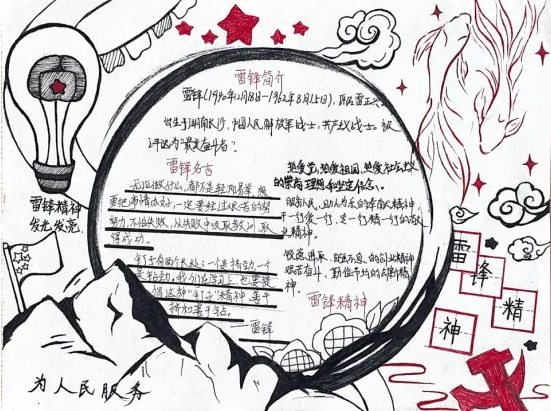 雷锋简介
雷锋(1940年12月18日—1962年8月15日),原名雷正兴
出生于湖南长沙,中国人民解放军战士,共产主义战士。被
评选为“最美奋斗者”。
雷锋名言
无论做什么,都不是轻而易举,想
要把事情办好,一定要经过艰苦的努
努力,不怕失败,从失败中吸取教训,取
得成功。
钉子有两个长处:一个是挤劲,一个
是钻劲。我们在学习上,也要提
倡这种“钉子”精神,善于
挤和善于钻。
雷锋
热爱党,热爱祖国,热爱社会主义
的崇高理想和坚定信念。
服务人民,助人为乐的奉献精神,
干一行爱一行,专一行精一行的敬
业精神。
锐意进取,自强不息的创业精神
艰苦奋斗,勤俭节约的创新精
神。
雷锋精神
雷锋精神
发光发亮
雷
锋
精
神
为人民服务